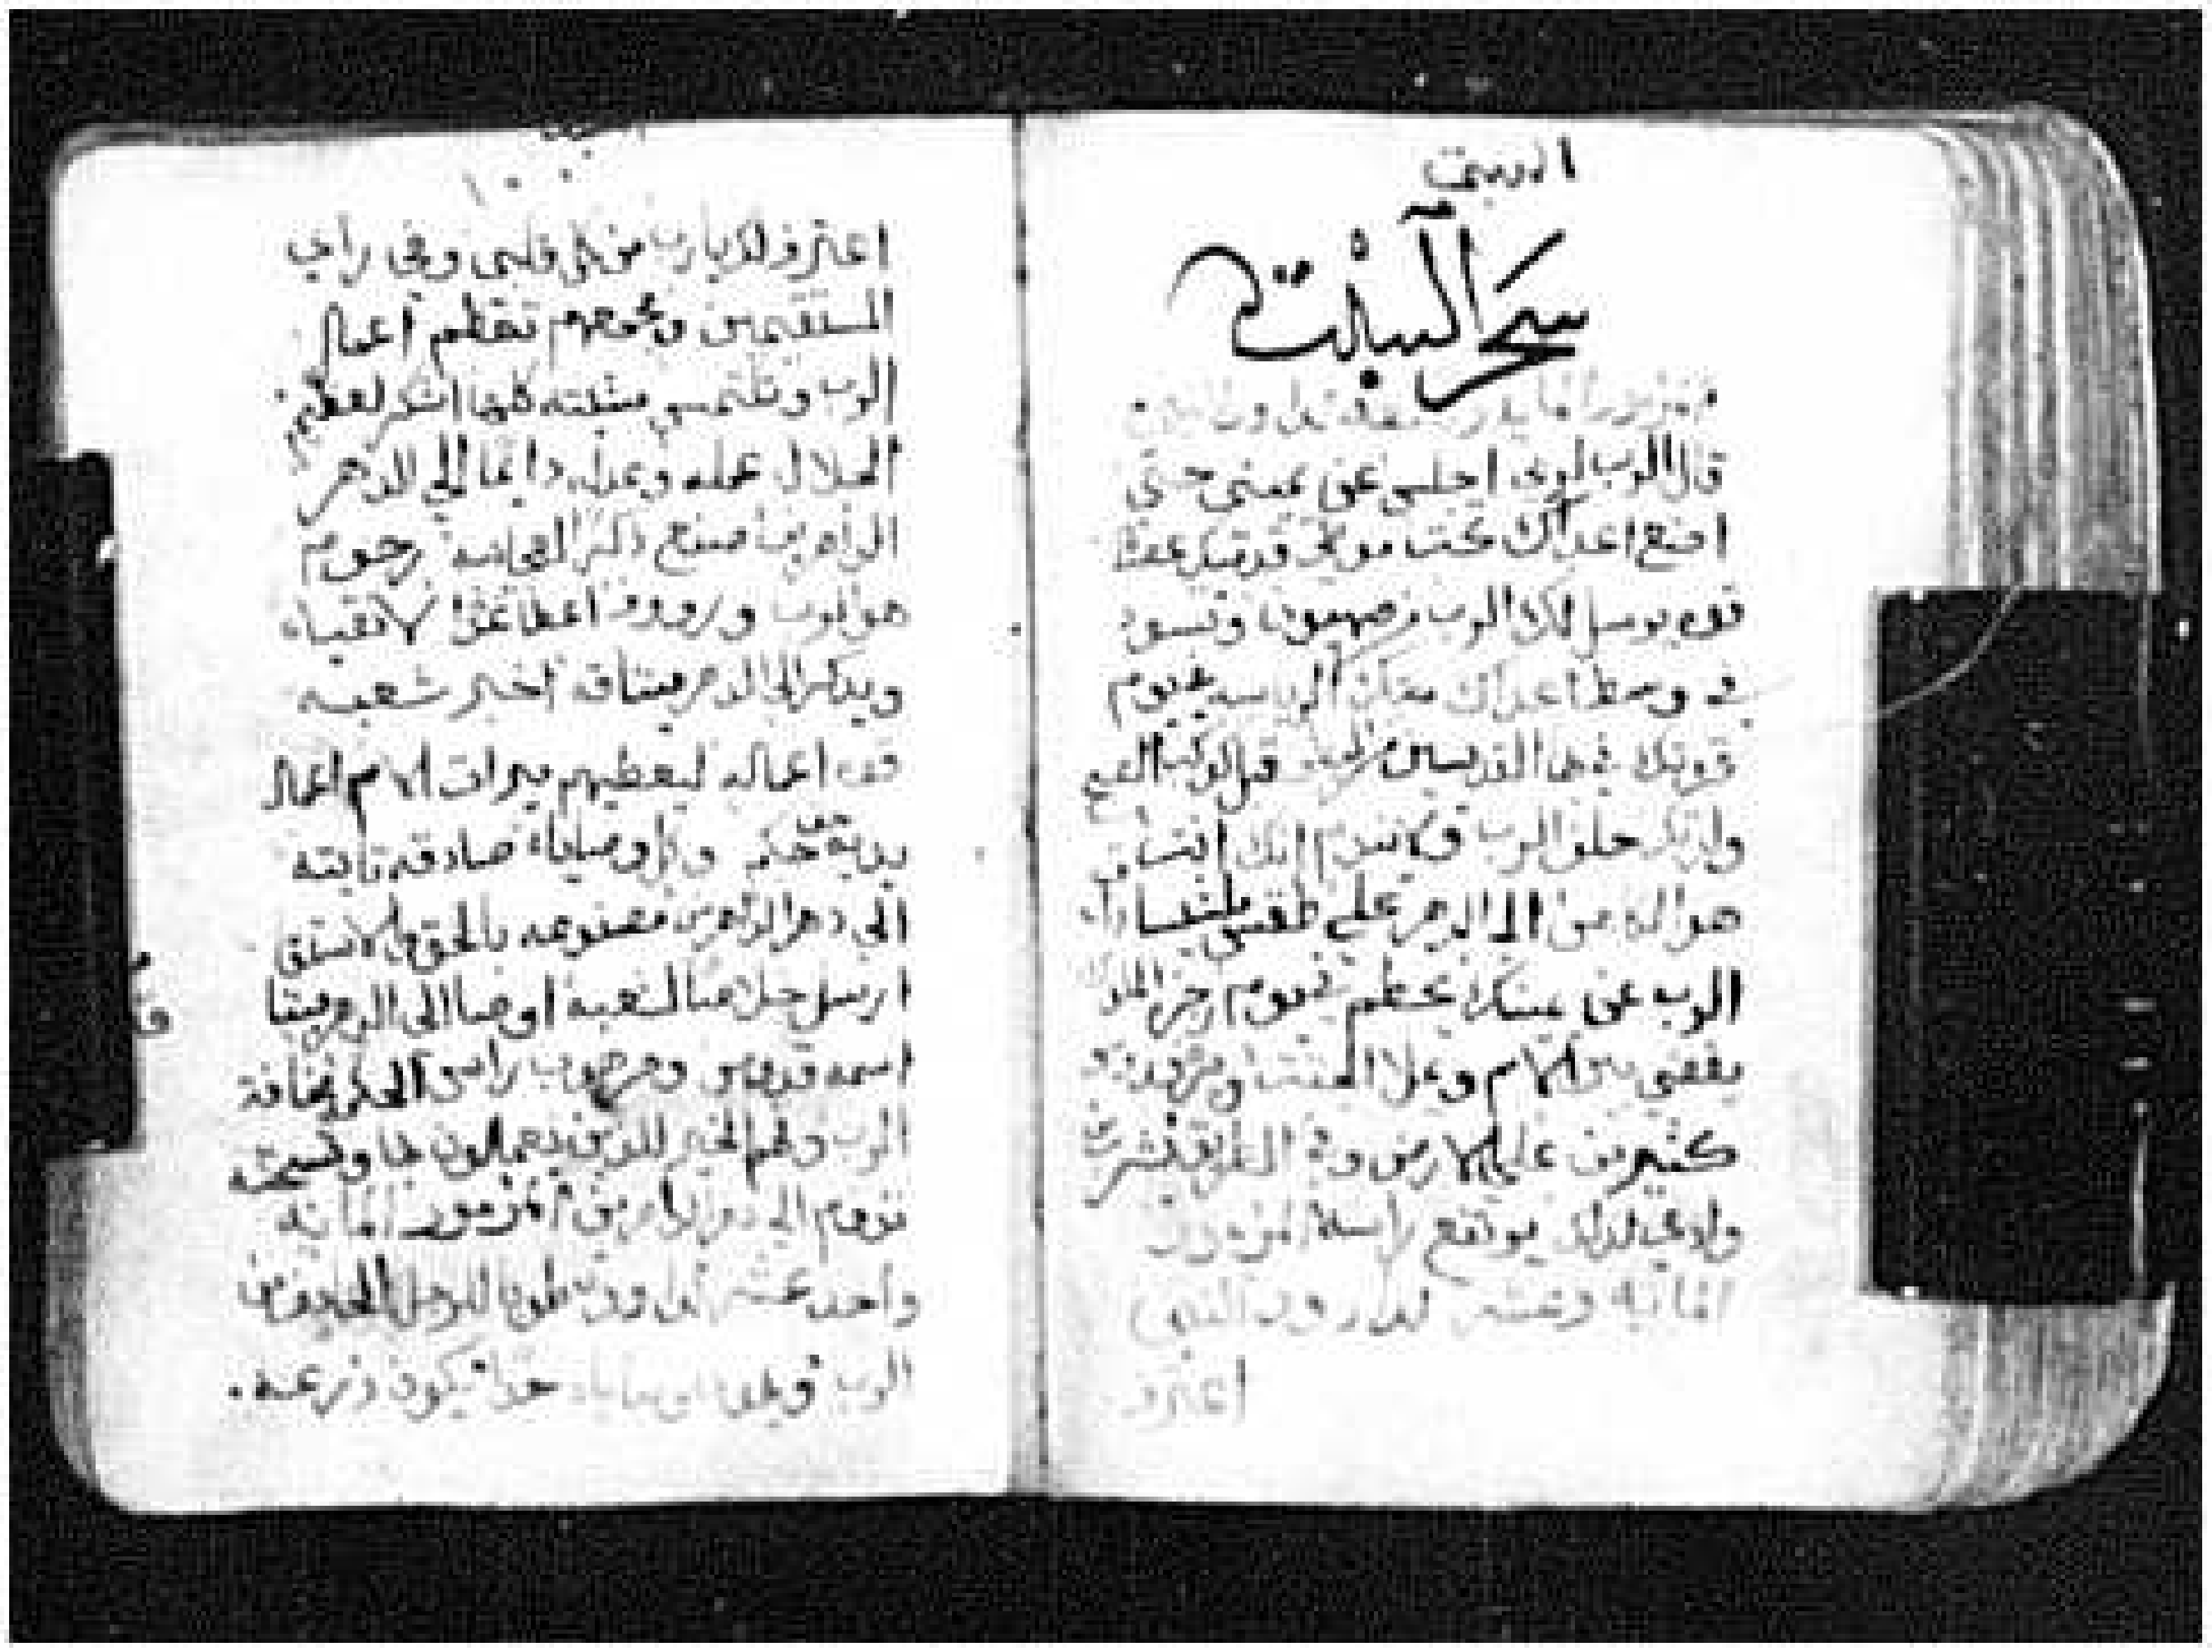 السبت
سحر السبت
قال الرب لربي اجلس عن يميني حتى
اضع اعداك تحت موطي قدميك عصا
قوه يرسل لك الرب من صهيون وتسود
في وسط اعداك معك الرياسه في يوم
قوتك في بها القديسين من البطن قبل كوكب الصبح
ولدتك حلف الرب ولا يندم انك انت
هو الكاهن الى الدهر على طقس ملشيساداق
الرب عن يمينك يحطم في يوم رجزه الملوك
يقضي بين الامم ويملا الجثث ويرض روس
كثيرين على الارض وفي الطريق يشرب
وادي لذلك يرتفع راسه المزمور
المايه وعشره لداوود النبي
اعترف
اعترف لك يارب من كل قلبي وفي راي
المستقيمين ومجمعهم تعظم اعمال
الرب وتلتمس مشيته كلها الشكر لعظيم
الجلال عمله وعدله دايما الى الدهر
الداهرين صنع ذكر العجايبه رحوم
هو الرب ورووف اعطا غذا لاتقياه
ويذكر الى الدهر ميثاقه اخبر شعبه
قوة اعماله ليعطيهم ميراث الامم اعمال
يديه حق وحكم وكل وصاياه صادقه ثابته
الى دهر الداهرين مصنوعه بالحق والاستقا
ارسل خلاصا لشعبه اوصا الى الدهر ميثا
اسمه قدوس ومرهوب راس الحكمه مخافة
الرب وفهم الخير للذين يعملون بها وتسبحته
تدوم الى دهر الداهرين المزمور المايه
واحد عشر لداوود طوبا للرجل الخايف من
الرب ويهوا وصاياه جدا يكون زرعه